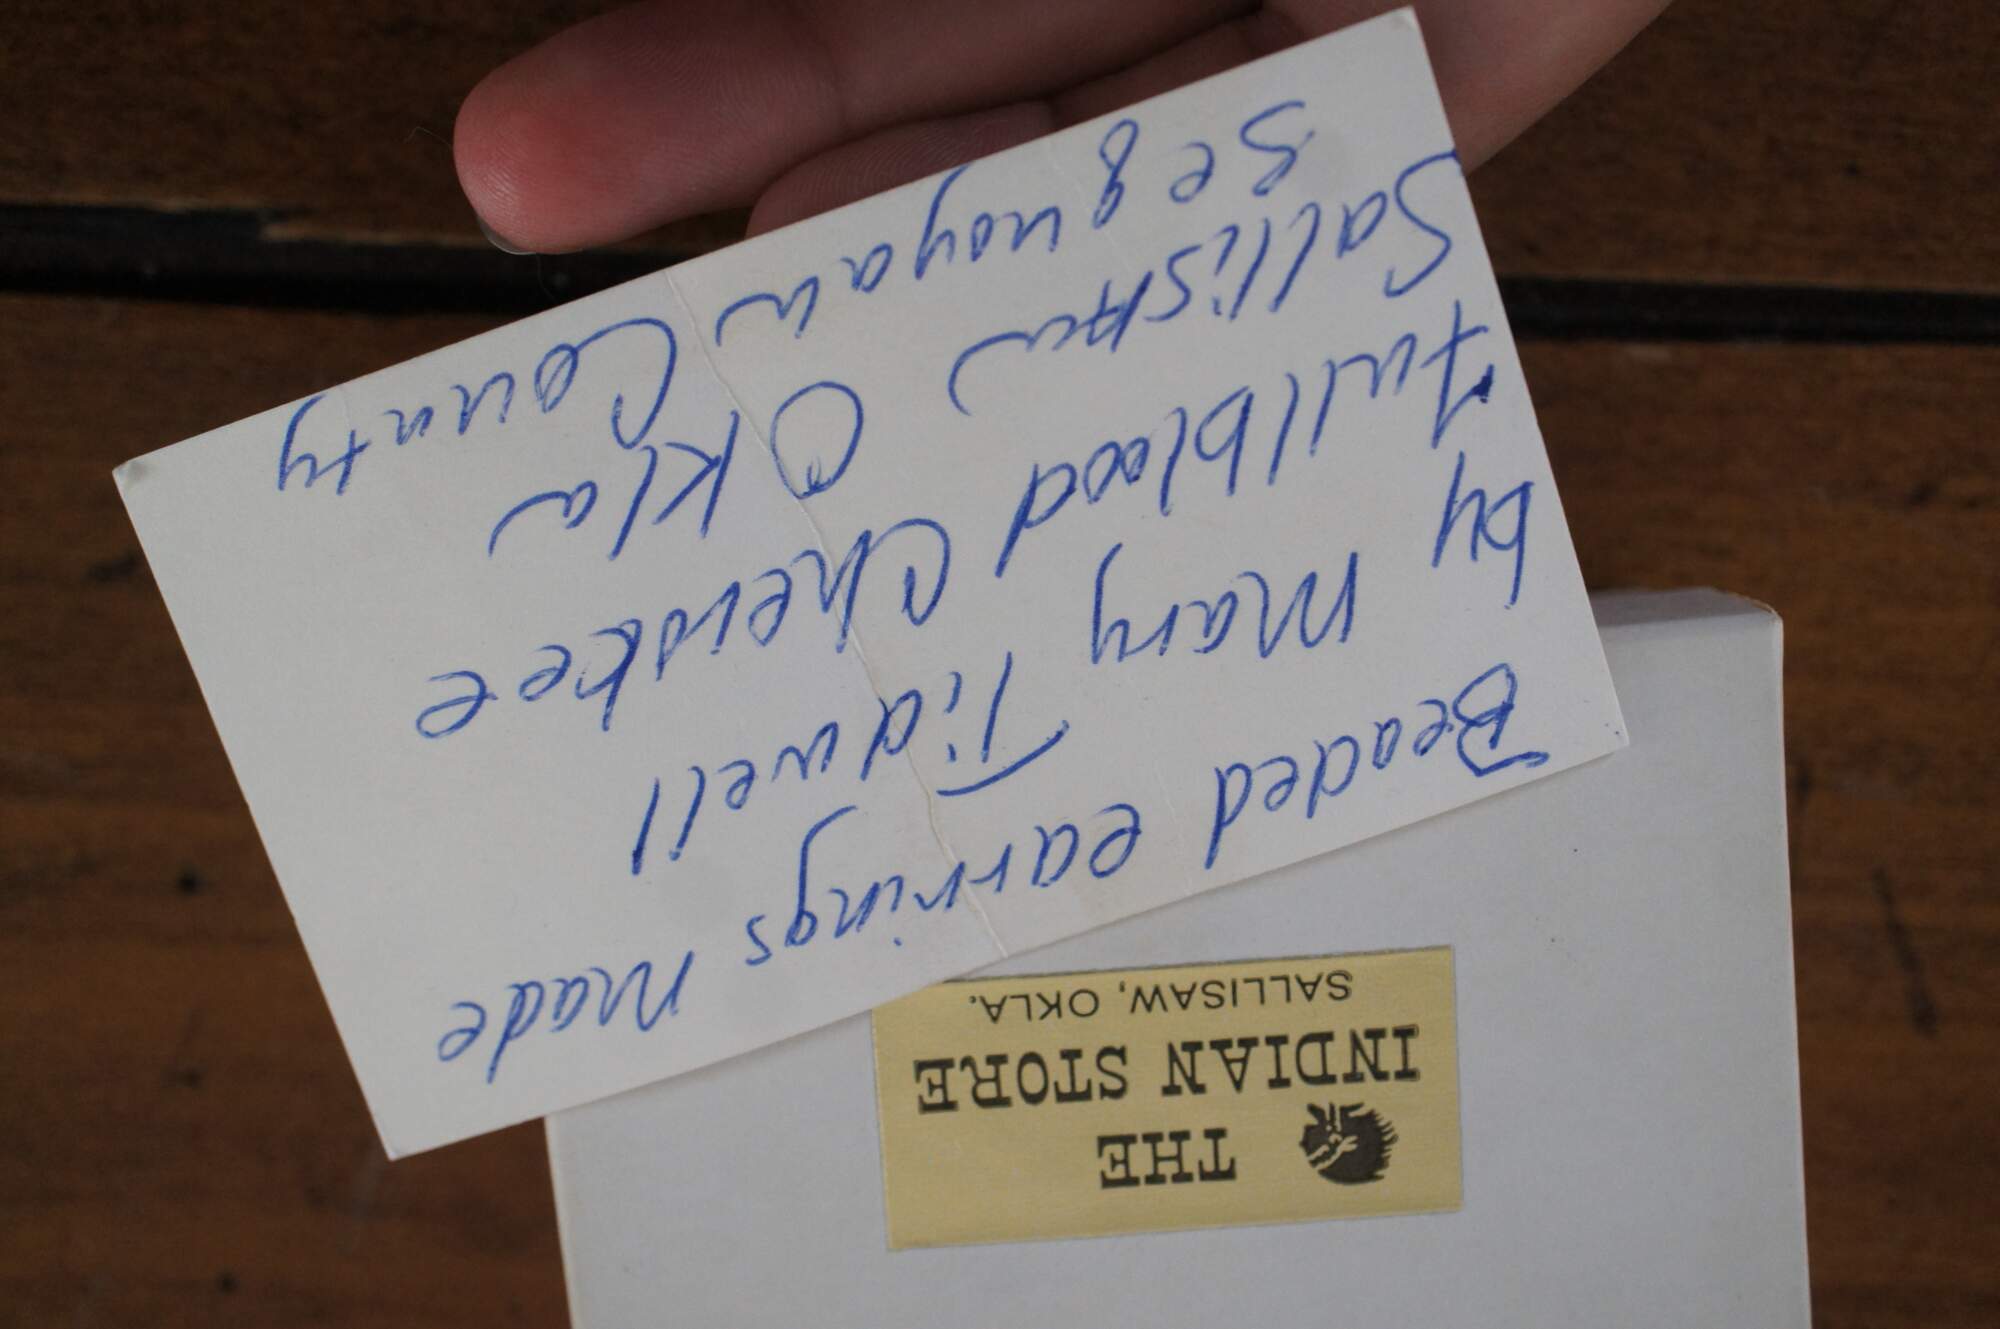 Beaded earrings made
by Mary Tidwell
Fullblood Cherokee
Sallisaw Okla
Sequoyah County
THE
INDIAN STORE
SALLISAW, OKLA.